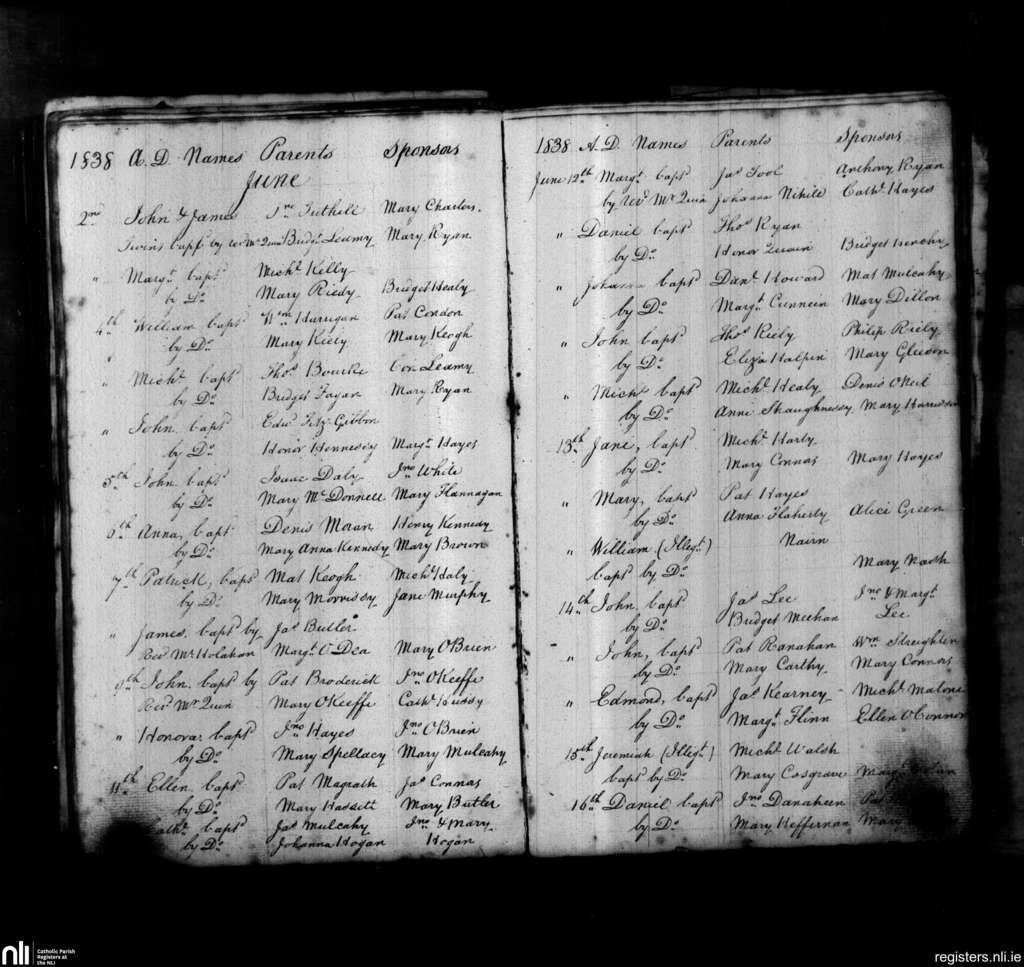 1838 A.D. Names Parents Sponsors
June
2nd John & James Jno Tuthill Mary Charles.
Twins bapts by revd Mr Quin Bridgt Leamy Mary Ryan
" Margt bapt Michl Kelly
by Do Mary Riedy Bridget Healy
4th William bapt Wm Harrigan Pat Condon
by Do Mary Kiely Mary Keogh
" Michl bapt Thos Bourke Con Leamy
by Do Bridget Fagan Mary Ryan
" John bapt Edwd Fitz Gibbon
by Do Honor Hennessy Margt Hayes
5th John bapt Isaac Daly Jno White
by Do Mary McDonnell Mary Flannagan
6th Anna, bapt Denis Moran Henry Kennedy
by Do Mary Anna Kennedy Mary Brown
7th Patrick, bapt Mat Keogh Michl Haly
by Do Mary Morrissy Jane Murphy
" James bapt by Jas Butler
Revd Mr Holahan Margt O'Dea Mary O'Brien
9th John bapt by Pat Broderick Jno O'Keeffe
Revd Mr Quin Mary O'Keeffe Cathe Hussy
" Honora bapt Jno Hayes Jno O'Brien
by Do Mary Spellacy Mary Mulcahy
11th Ellen bapt Pat Magrath Jas Connas
by Do Mary Hassett Mary Butler
bapt Jas Mulcahy Jno & Mary
by Do Johanna Hogan Hogan
1838 A.D. Names Parents Sponsors
June 12th Margt bapt Jas Tool Anthony Ryan
by revd Mr Quin Johanna Cathe Hayes
" Daniel bapt Thos Ryan
by Do Honor Bridget
" Johanna bapt Danl Howard Mat Mulcahy
by Do Margt Cunneen Mary Dillon
" John bapt Thos Riely Philip Riely
by Do Eliza Halpin Mary Gleeson
" Michl bapt Michl Healy Denis O'Neil
by Do Anne Shaughnessy Mary
13th Jane, bapt Michl Harty
by Do Mary Connas Mary Hayes
" Mary, bapt Pat Hayes
by Do Anna Flaherty Alice Green
" William (Illegt) Nairn
bapt by Do Mary Nash
14th John, bapt Jas Lee Jno & Margt
by Do Bridget Meehan Lee
" John, bapt Pat Ranahan Wm
by Do Mary Carthy Mary Connas
" Edmond, bapt Jas Kearney Michl Malone
by Do Margt Flinn Ellen O'Connor
15th Jeremiah (Illegt) Michl Walsh
bapt by Do Mary Cosgrave Margt
16th Daniel bapt Jno Danaheen Pat
by Do Mary Heffernan Mary
nli
Catholic Parish
Registers at
the NLI
registers.nli.ie